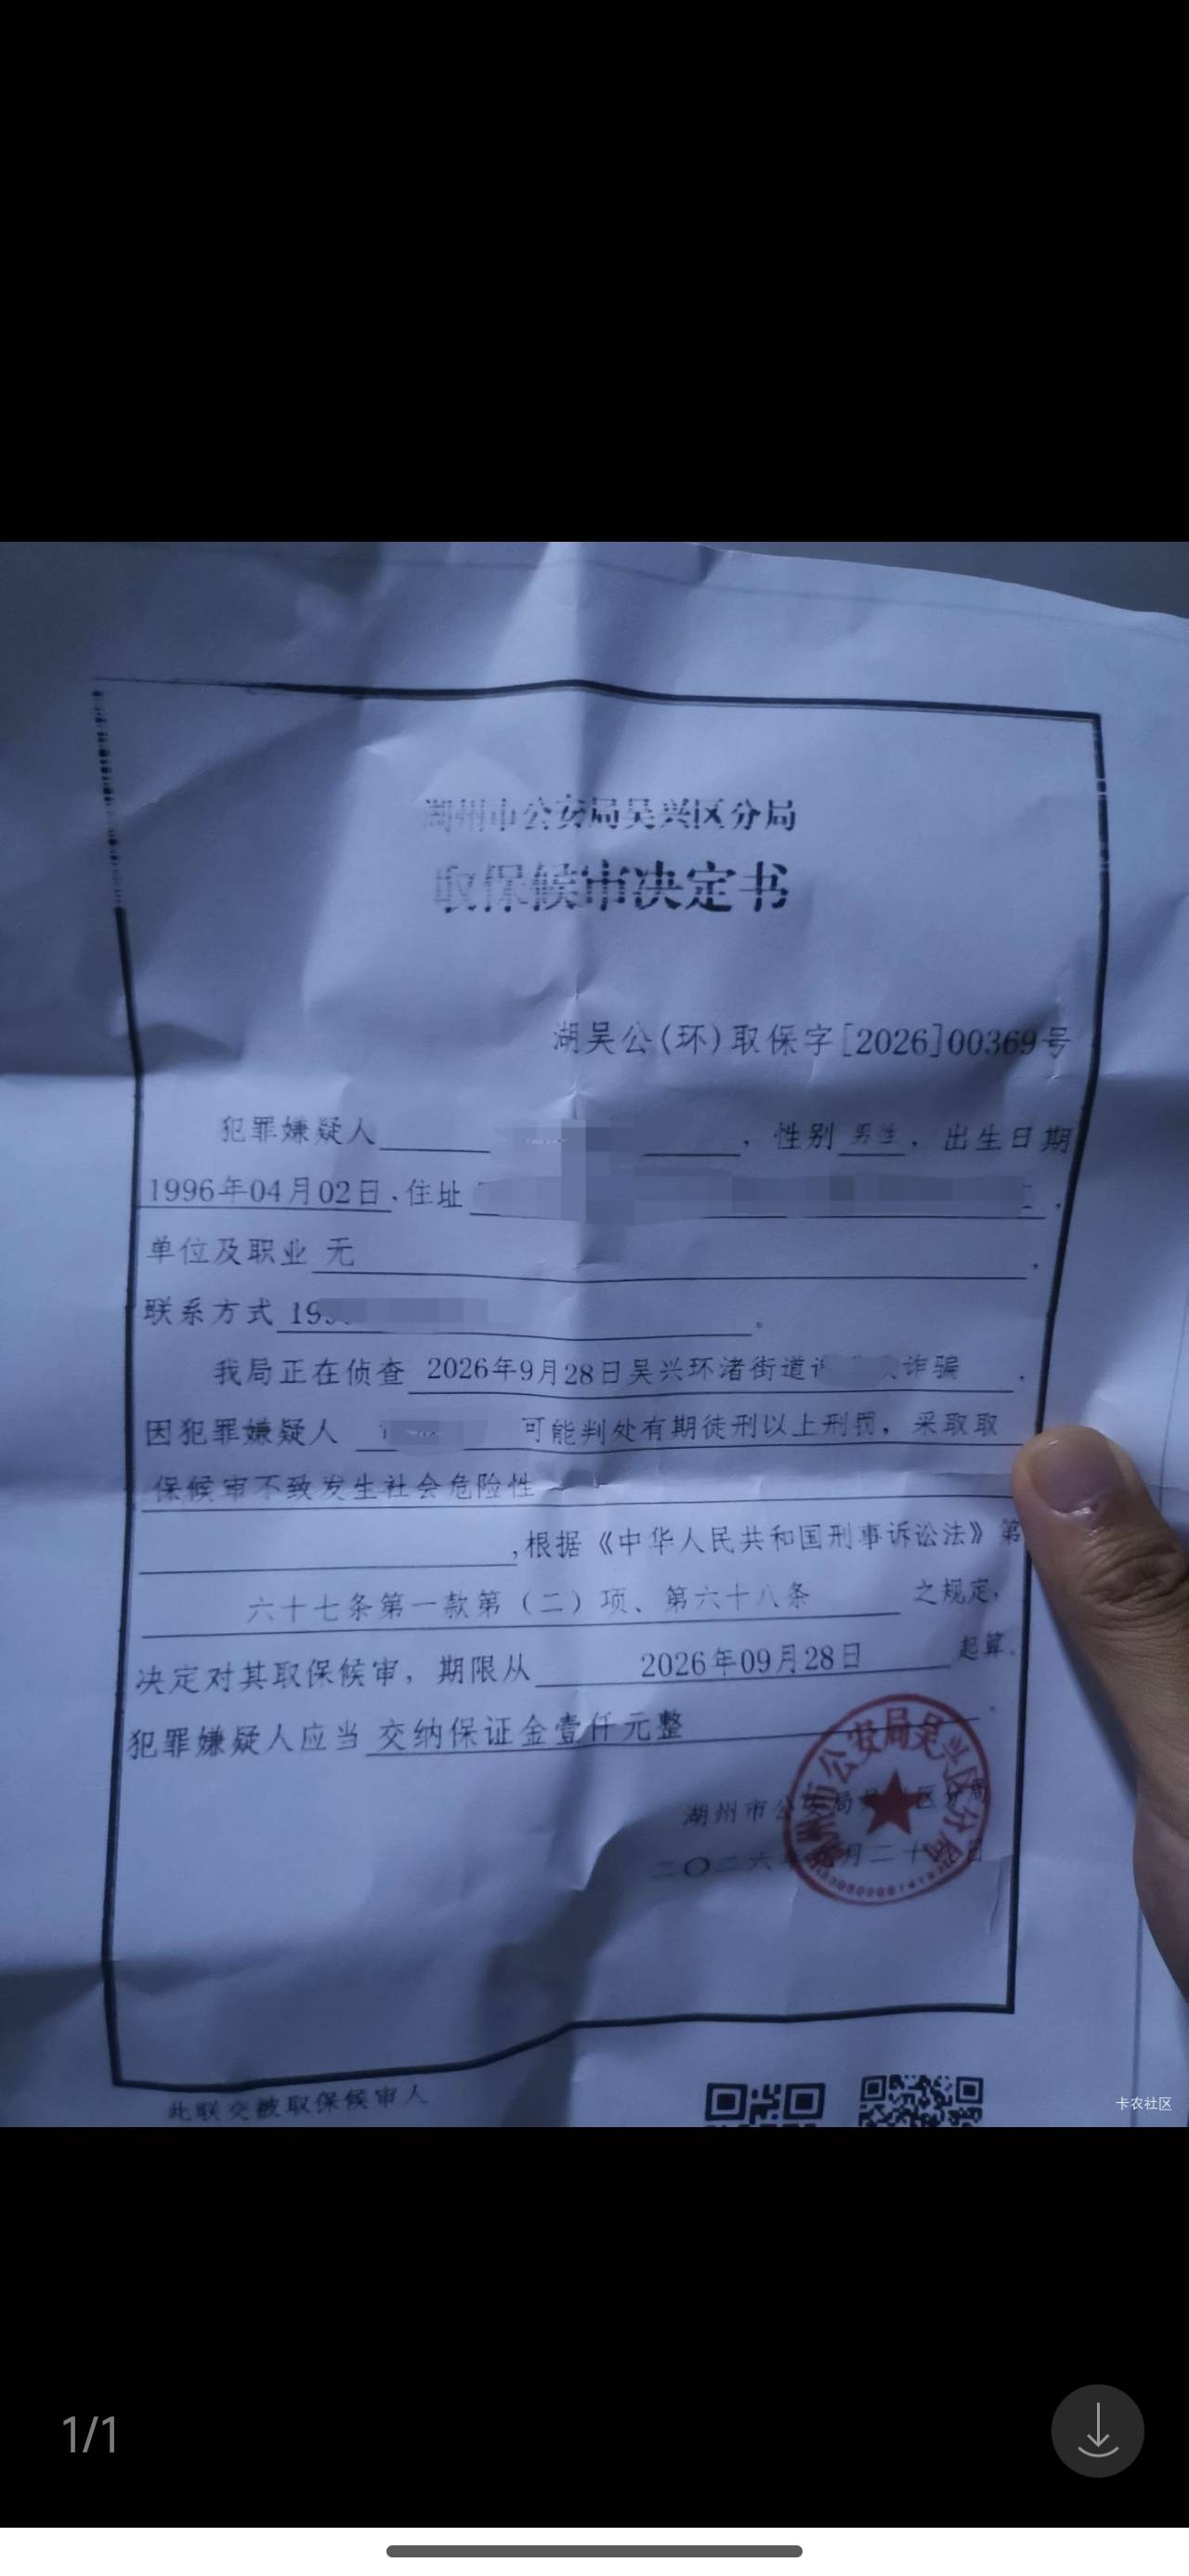 湖州市公安局吴兴区分局
取保候审决定书
湖吴公(环)取保字[2026]00369号
犯罪嫌疑人 ,性别 男性,出生日期
1996年04月02日,住址 ,
单位及职业 无 ,
联系方式 199 。
我局正在侦查 2026年9月28日吴兴环渚街道 诈骗 ,
因犯罪嫌疑人 可能判处有期徒刑以上刑罚,采取取
保候审不致发生社会危险性
,根据《中华人民共和国刑事诉讼法》第
六十七条第一款第(二)项、第六十八条 之规定,
决定对其取保候审,期限从 2026年09月28日 起算。
犯罪嫌疑人应当 交纳保证金壹仟元整 。
湖州市公安局吴兴区分局
二〇二六 月二十 日
此联交被取保候审人
卡农社区
1/1